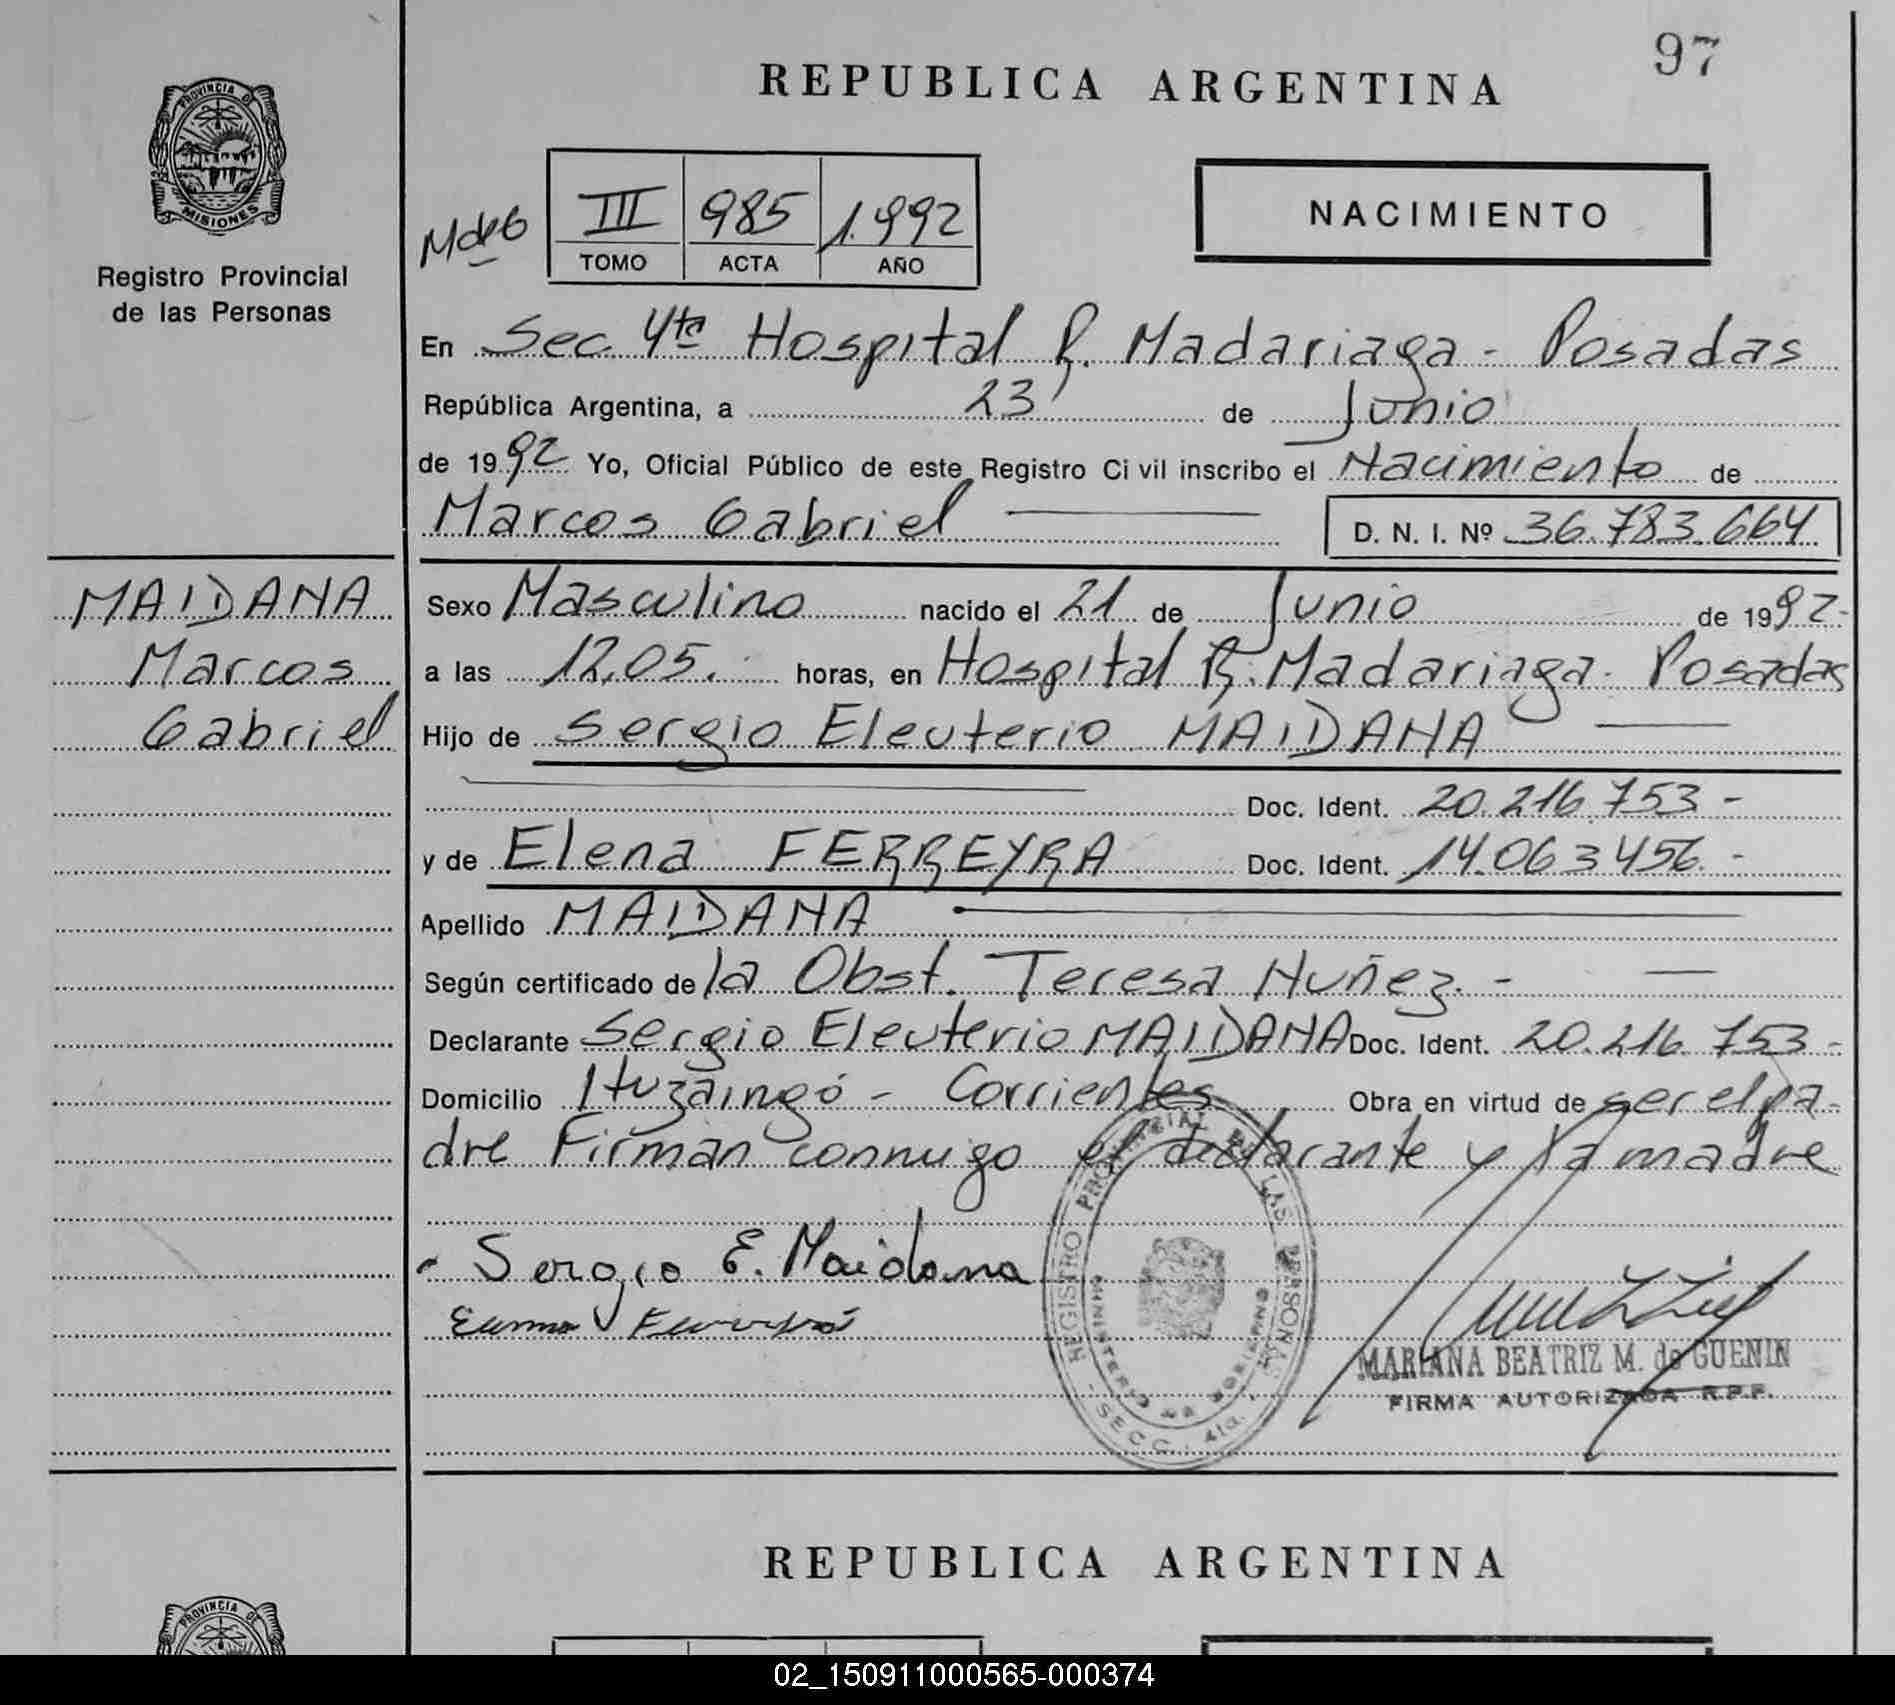 97
REPUBLICA ARGENTINA
PROVINCIA DE
MISIONES
Registro Provincial
de las Personas
MdeG
III 985 1.992
TOMO ACTA AÑO
NACIMIENTO
En Sec. 4ta Hospital R. Madariaga - Posadas
República Argentina, a 23 de Junio
de 1992 Yo, Oficial Público de este Registro Civil inscribo el Nacimiento de
Marcos Gabriel D. N. I. Nº 36.783.664
MAIDANA
Marcos
Gabriel
Sexo Masculino nacido el 21 de Junio de 1992-
a las 12,05. horas, en Hospital R. Madariaga. Posadas
Hijo de Sergio Eleuterio MAIDANA
Doc. Ident. 20.216.753-
y de Elena FERREYRA Doc. Ident. 14.063456.-
Apellido MAIDANA
Según certificado de la Obst. Teresa Nuñez.-
Declarante Sergio Eleuterio MAIDANA Doc. Ident. 20.216.753-
Domicilio Ituzaingó - Corrientes Obra en virtud de ser el pa-
dre Firman conmigo el declarante y la madre
Sergio E. Maidana
REGISTRO PROVINCIAL DE LAS PERSONAS
MINISTERIO DE GOBIERNO
- SECC. 4ta. -
MARIANA BEATRIZ M. de GUENIN
FIRMA AUTORIZADA R.P.P.
REPUBLICA ARGENTINA
PROVINCIA DE
02_150911000565-000374